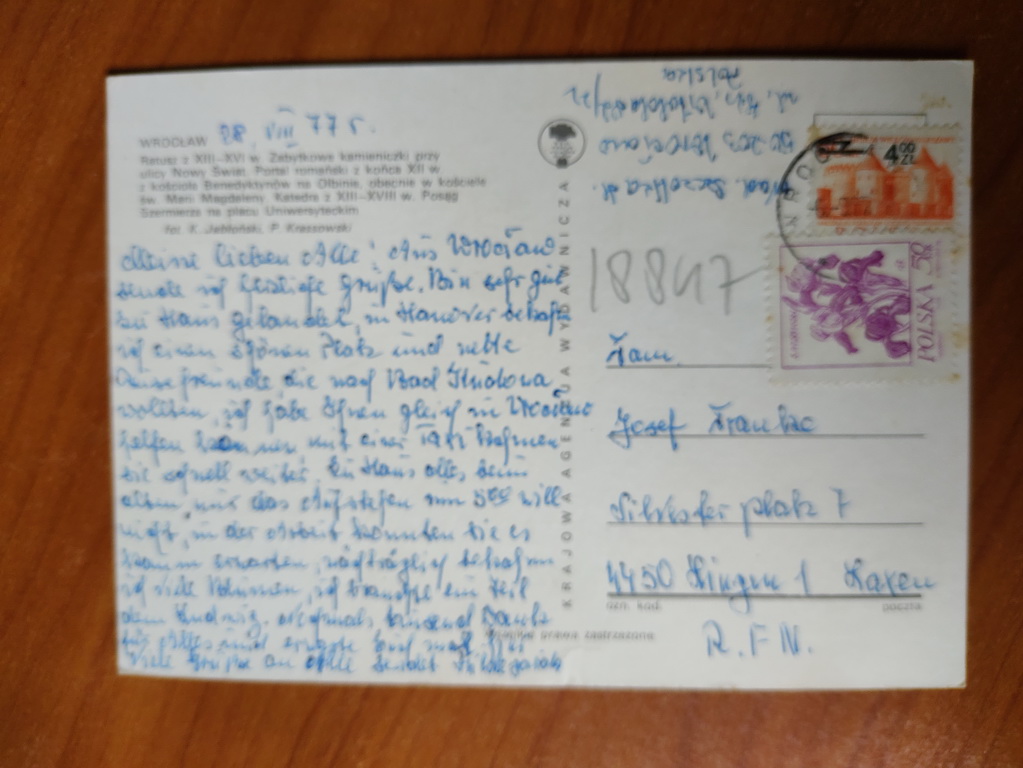 WROCŁAW 28. VIII 77 r.
Ratusz z XIII–XVI w. Zabytkowe kamieniczki przy
ulicy Nowy Świat. Portal romański z końca XII w
z kościoła Benedyktynów na Ołbinie, obecnie w kościele
św. Marii Magdaleny. Katedra z XIII–XVIII w. Posąg
Szermierza na placu Uniwersyteckim
fot. K. Jabłoński, P. Krassowski
Meine lieben Alle! Aus Wrocław
sende ich herzliche Grüße. Bin sehr gut
zu Haus gelandet, in Hanover
ich einen schönen Platz und nette
die nach Bad Kudowa
wollten, ich habe ihnen gleich in Wrocław
helfen können, mit einer Taxi
sie schnell weiter. Zu Haus alles beim
alten, nur das Aufstehen um 5°° will
nicht, in der Arbeit konnten sie es
kaum erwarten, nachträglich
ich viele Blumen, ich ein Teil
dem Ludwig. Nochmals tausend Dank
für Alles und
Viele Grüße an Alle sendet
KRAJOWA AGENCJA WYDAWNICZA
prawa zastrzeżone
50-203 Wrocław
Polska
4.00 ZŁ
POLSKA 50
18847
Fam.
Josef
7
4450 Lingen 1 Laxten
ozn. kod. poczta
R.F.N.